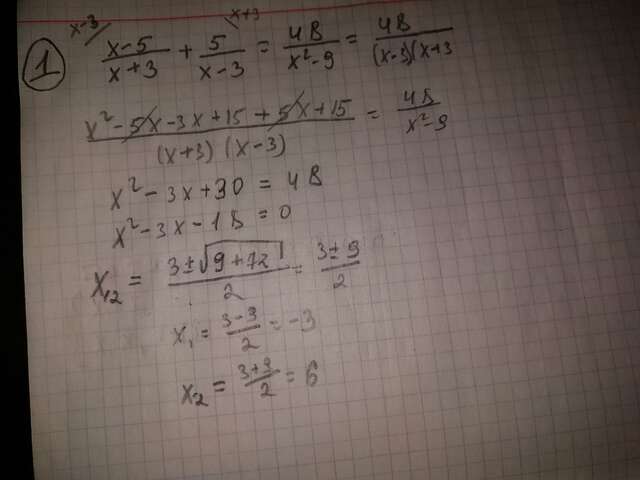 x-3 x+3
1 (x-5)/(x+3) + 5/(x-3) = 48/(x²-9) = 48/((x-3)(x+3
(x²-5x-3x+15+5x+15)/((x+3)(x-3)) = 48/(x²-9)
x²-3x+30 = 48
x²-3x-18=0
x₁₂ = (3±√(9+72))/2 = (3±9)/2
x₁ = (3-9)/2 = -3
x₂ = (3+9)/2 = 6